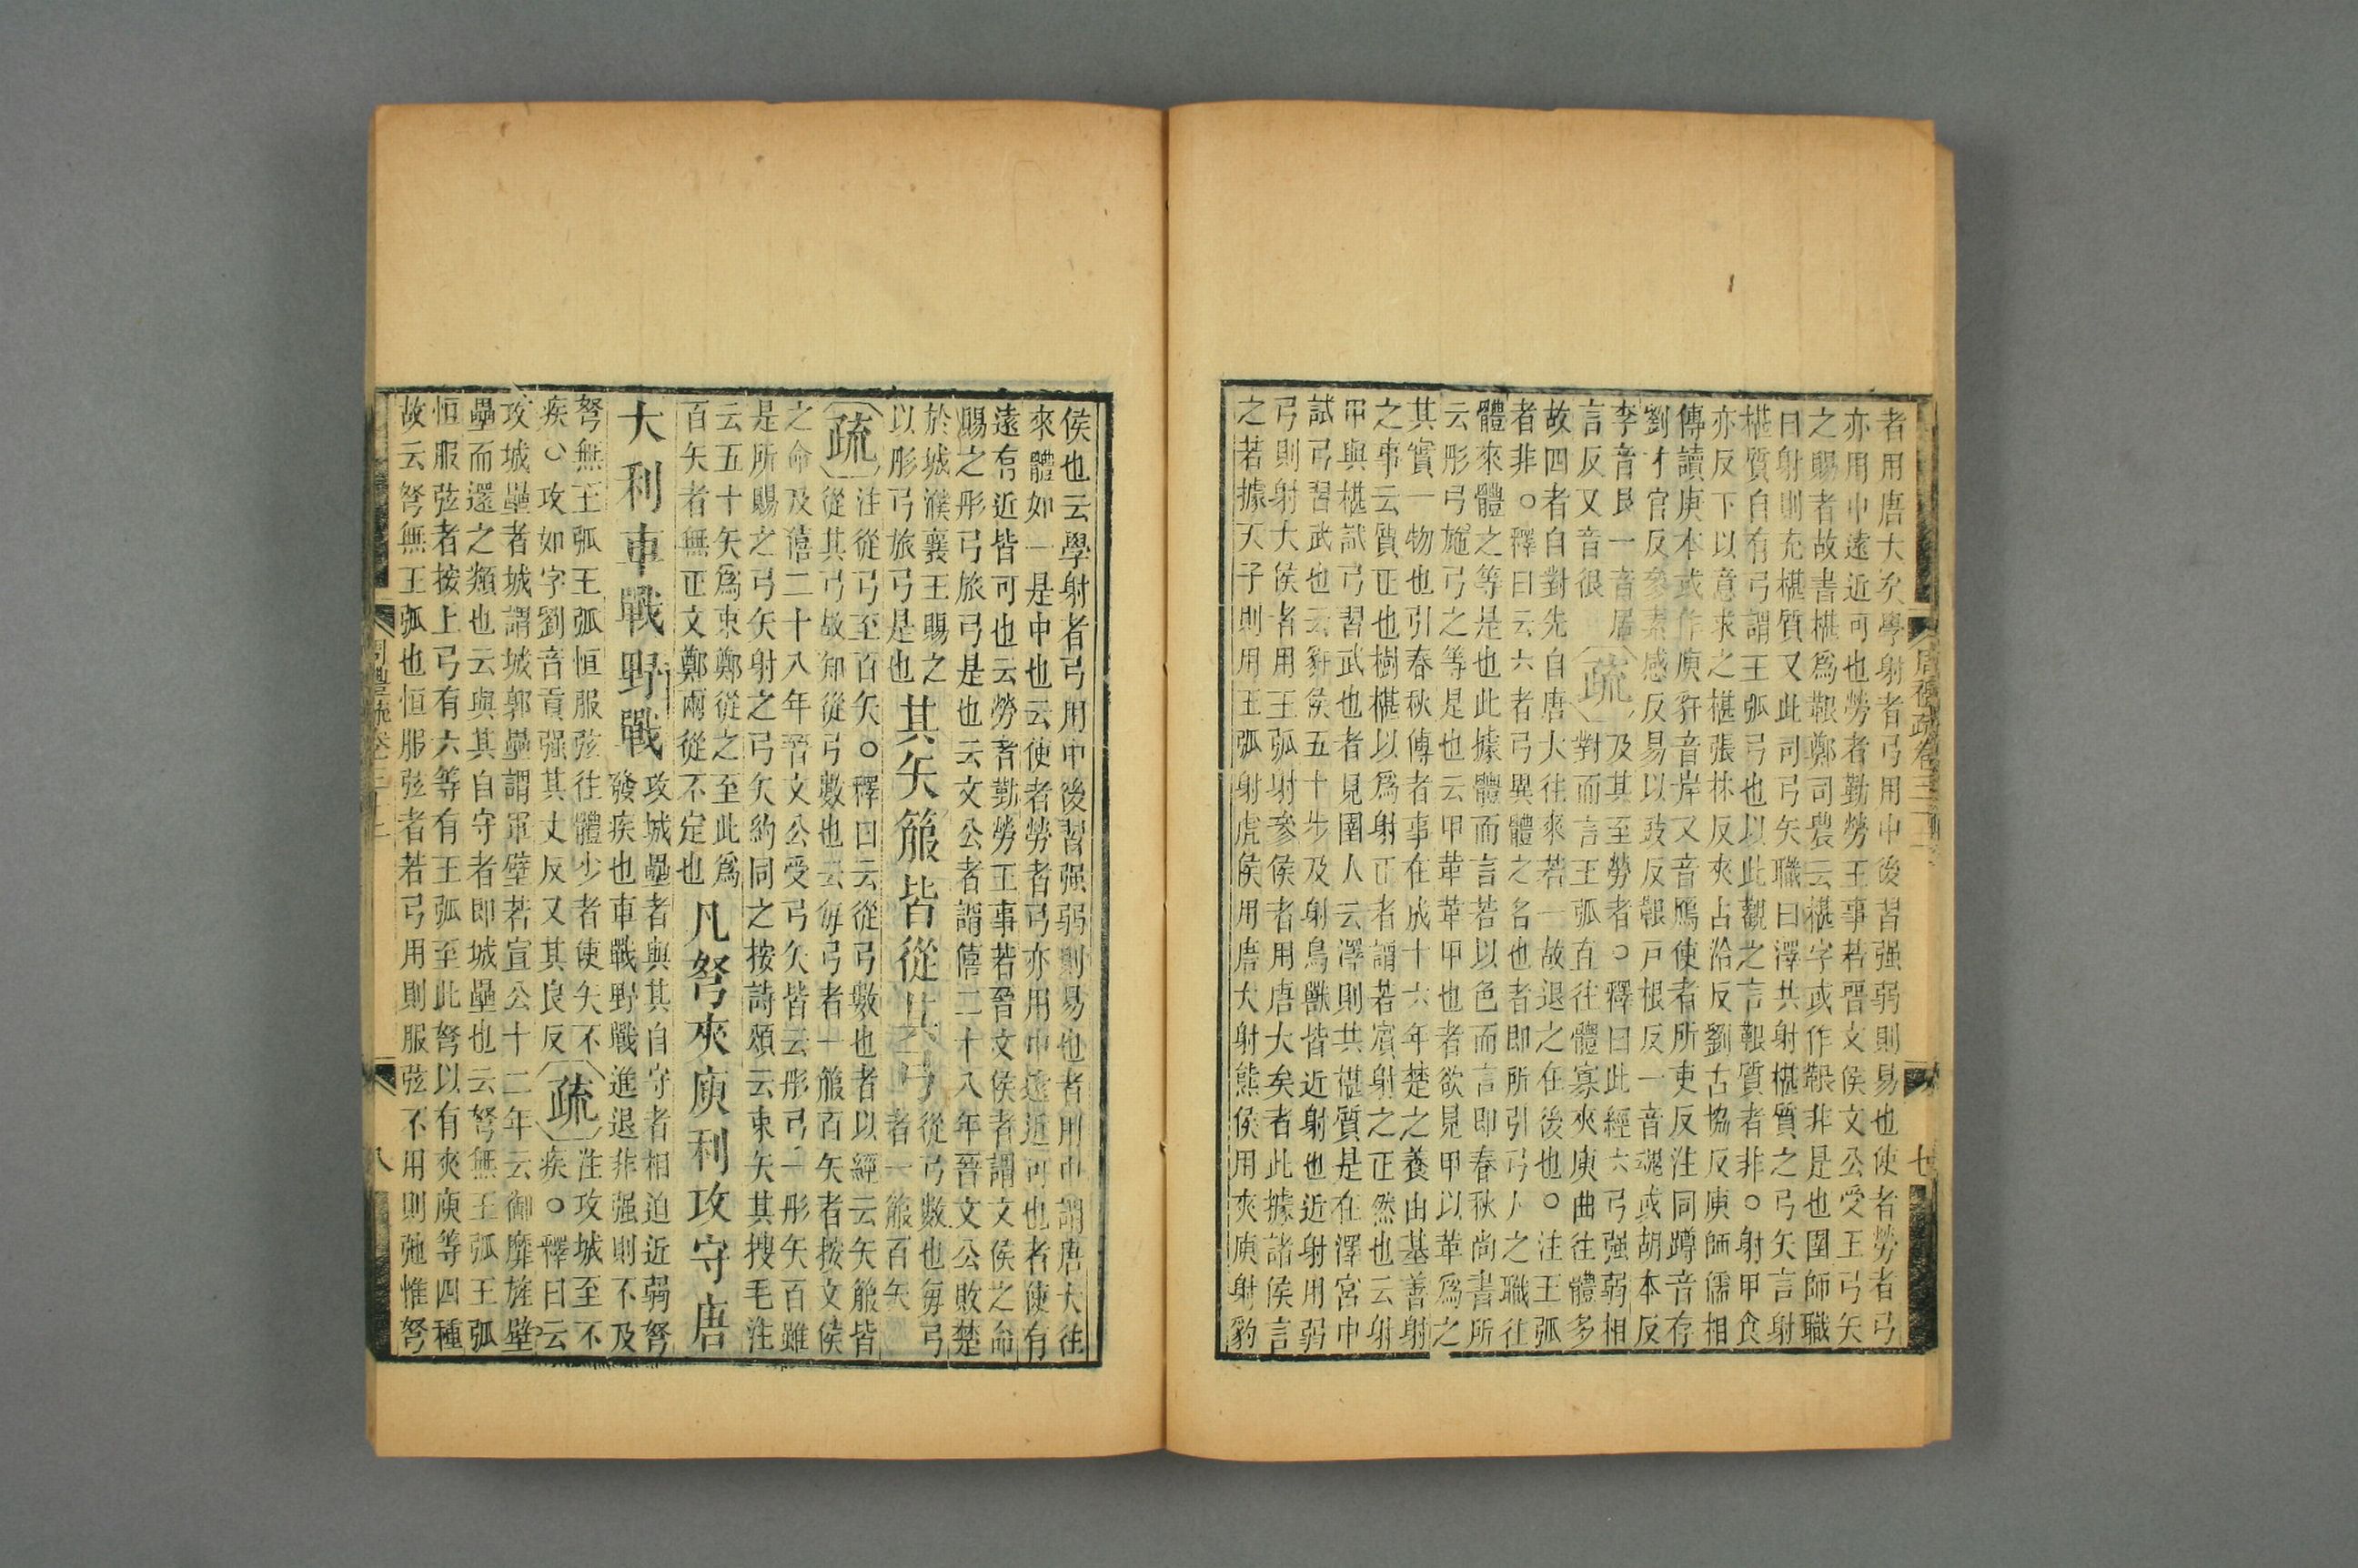 者用唐大矣學射者弓用中後習强弱則易也使者勞者弓
亦用中遠近可也勞者勤勞王事若晉文侯文公受王弓矢
之賜者故書椹爲䩞鄭司農云椹字或作䩞非是也圉師職
曰射則充椹質又此司弓矢職曰澤共射椹質之弓矢言射
椹質自有弓謂王弧弓也以此觀之言䩞質者非○射甲食
亦反下以意求之椹張林反夾古洽反劉古協反庾師儒相
傳讀庾本或作㢏豻音岸又音鴈使者所吏反注同蹲音存
劉才官反參素感反易以豉反䩞戸根反一音魂或胡本反
李音艮一音居
言反又音很
疏
及其至勞者○釋曰此經六弓强弱相
對而言王弧直往體寡夾庾曲往體多
故四者自對先自唐大往來若一故退之在後也○注王弧
者非○釋曰云六者弓異體之名也者即所引弓人之職往
體來體之等是也此據體而言若以色而言即春秋尚書所
云彤弓旅弓之等是也云甲革革甲也者欲見甲以革爲之
其實一物也引春秋傳者事在成十六年楚之養由基善射
之事云質正也樹椹以爲射正者謂若賓射之正然也云射
甲與椹試弓習武也者見圉人云澤則共椹質是在澤宮中
試弓習武也云豻侯五十步及射鳥獸皆近射也近射用弱
弓則射大侯者用王弧射參侯者用唐大矣者此據諸侯言
之若據天子則用王弧射虎侯用唐大射熊侯用夾庾射豹
周禮疏卷三十二
七
侯也云學射者弓用中後習强弱則易也者用中謂唐大往
來體如一是中也云使者勞者弓亦用中遠近可也者使有
遠有近皆可也云勞者勤勞王事若晉文侯者謂文侯之命
賜之彤弓旅弓是也云文公者謂僖二十八年晉文公敗楚
於城濮襄王賜之
以彤弓旅弓是也
其矢箙皆從其弓
從弓數也每弓
者一箙百矢
疏
注從弓至百矢○釋曰云從弓數也者以經云矢箙皆
從其弓故知從弓數也云每弓者一箙百矢者按文侯
之命及僖二十八年晉文公受弓矢皆云彤弓一彤矢百雖
是所賜之弓矢射之弓矢約同之按詩頌云束矢其搜毛注
云五十矢爲束鄭從之至此爲
百矢者無正文鄭兩從不定也
凡弩夾庾利攻守唐
大利車戰野戰
攻城壘者與其自守者相迫近弱弩
發疾也車戰野戰進退非强則不及
弩無王弧王弧恒服弦往體少者使矢不
疾○攻如字劉音貢强其丈反又其良反
疏
注攻城至不
疾○釋曰云
攻城壘者城謂城郭壘謂軍壁若宣公十二年云御靡旌壁
壘而還之類也云與其自守者即城壘也云弩無王弧王弧
恒服弦者按上弓有六等有王弧至此弩以有夾庾等四種
故云弩無王弧也恒服弦者若弓用則服弦不用則弛惟弩
八